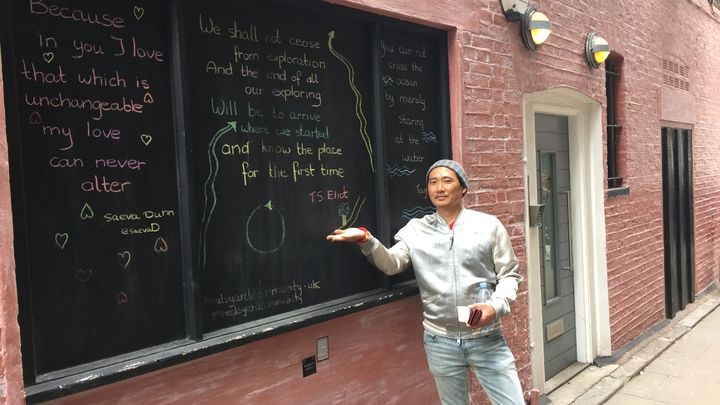 Because
in you I love
that which is
unchangeable
my love
can never
alter
Saeva Dunn
@saevaD
We shall not cease
from exploration
And the end of all
our exploring
Will be to arrive
where we started
and know the place
for the first time
T.S. Eliot
nealsyardcommunity.uk
@nealsyardcommunity
you can not
cross the
ocean
by merely
staring
at the
water